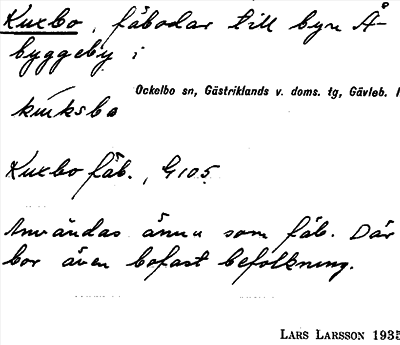 Kuxbo, fäbodar till byn Å-
byggeby i
Ockelbo sn, Gästriklands v. doms. tg, Gävleb. l
kuksbo
Kuxbo fäb., G105.
Användas ännu som fäb. Där
bor även bofast befolkning.
LARS LARSSON 1935